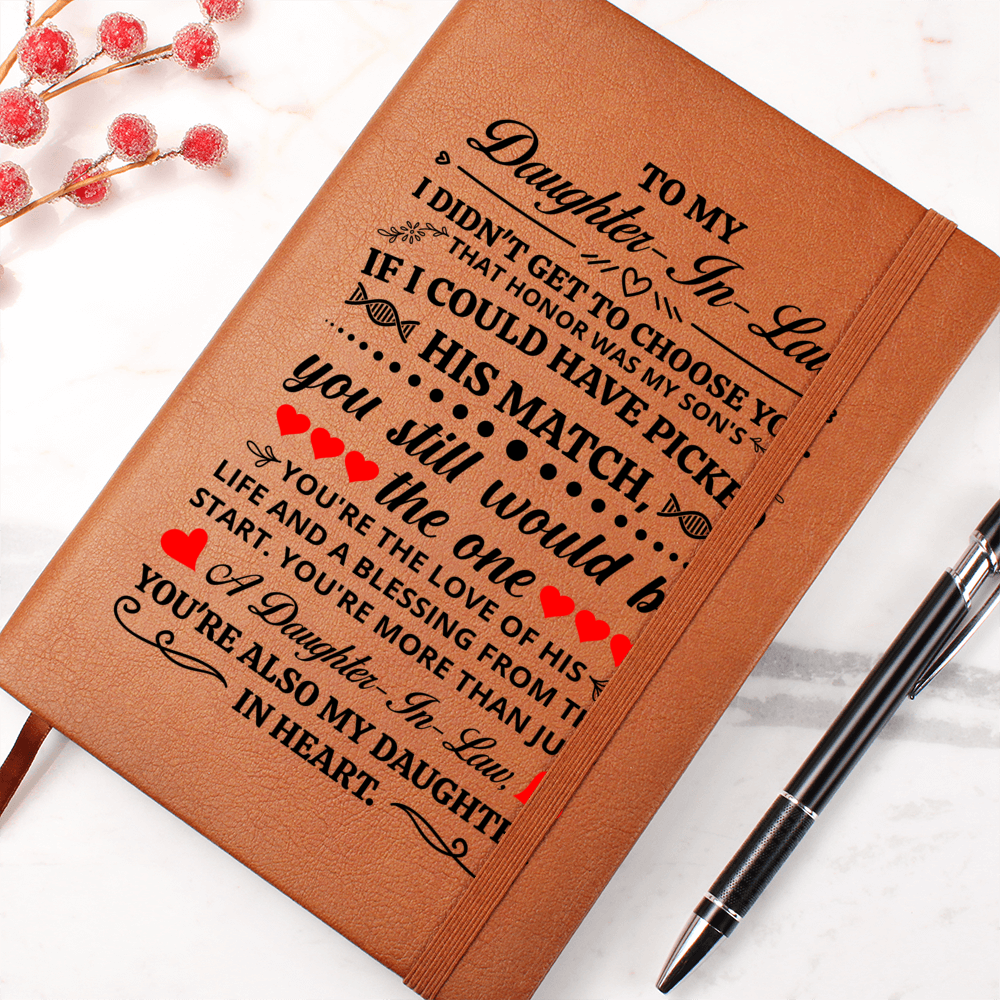 TO MY
Daughter-In-Law
I DIDN'T GET TO CHOOSE YO
THAT HONOR WAS MY SON'S
IF I COULD HAVE PICKE
HIS MATCH,
you still would b
the one
YOU'RE THE LOVE OF HIS
LIFE AND A BLESSING FROM T
START. YOU'RE MORE THAN JU
A Daughter-In-Law,
YOU'RE ALSO MY DAUGHTE
IN HEART.